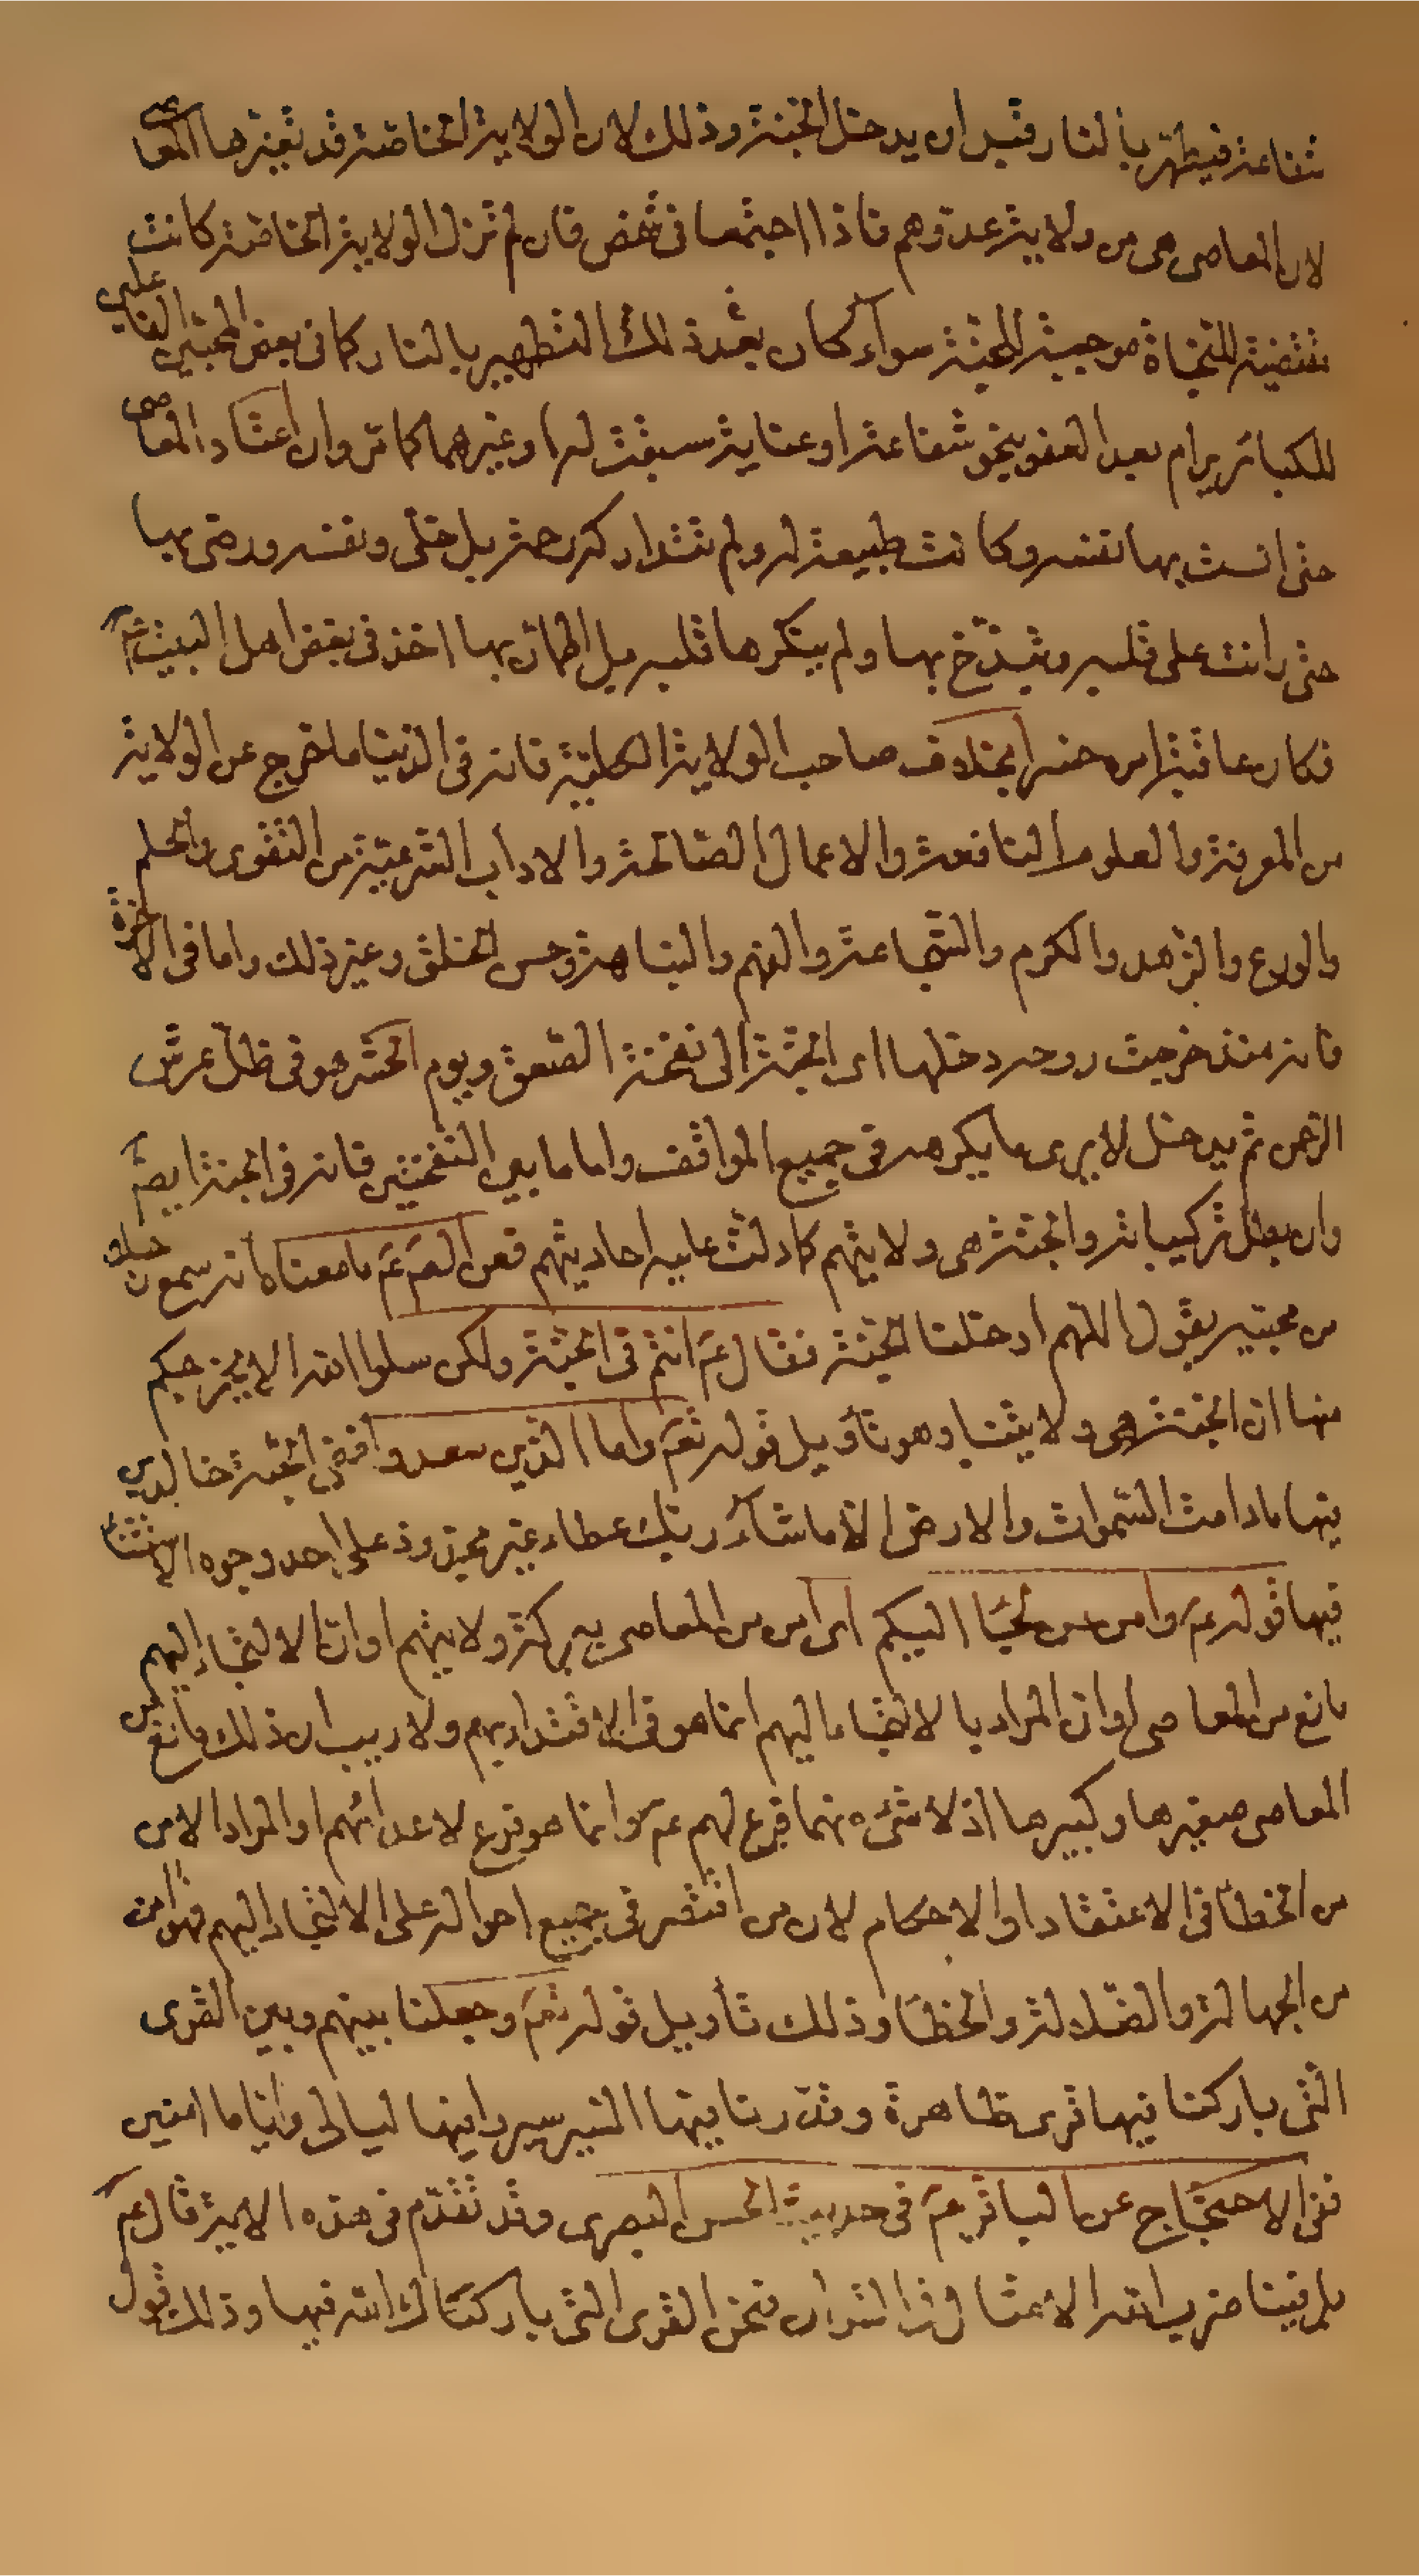 شفاعة فيطهّر بالنار قبل ان يدخل الجنة وذلك لان الولاية الخاصة قد تغيّرها المعاصى
لان المعاصى هى من ولاية عدوّهم فاذا اجتمعا فى شخص فان لم تزل الولاية الخاصة كانت
مقتضية للنجاة موجبة للجنة سوآء كان بعد ذلك التطهير بالنار كما فى بعض المحبّين الفاعلين
للكبائر ام بعد العفو بنحو شفاعة او عناية سبقت له او غيرهما كما مر وان اعتاد المعاصى
حتى انست بها نفسه وكانت طبيعة له ولم تتداركه رحمة بل خلّى ونفسه ورضى بها
حتى رانت على قلبه و بها ولم ينكرها قلبه بل اطمأن بها اخذ فى بغض اهل البيت عم
فكان عاقبة امره خسرا بخلاف صاحب الولاية الكلية فانه فى الدنيا ما خرج عن الولاية
من المعرفة والعلوم النافعة والاعمال الصالحة والاداب الشرعيّة من التقوى والحلم
والورع والزهد والكرم والشجاعة والفهم والنباهة وحسن الخلق وغير ذلك واما فى الاخرة
فانه منذ خرجت روحه دخلها اى الجنة الى نفخة الصعق ويوم الحشر هو فى ظلّ عرش
الرحمن ثم يدخل لا يرى ما يكرهه فى جميع المواقف واما ما بين النفختين فانه فى الجنة ايضا
وان بطل تركيباته والجنة هى ولايتهم كما دلت عليه احاديثهم فعن الصم عم ما معناه انه سمع رجلا
من محبيه يقول اللهم ادخلنا الجنة فقال عم انتم فى الجنة ولكن سلوا الله الا يخرجكم
منها ان الجنة هى ولايتنا وهو تأويل قوله تعم واما الذين سعدوا ففى الجنة خالدين
فيها ما دامت السموات والارض الا ما شآء ربك عطاء غير مجذوذ على احد وجوه الاستثناء
فيها قوله عم وامن من لجأ اليكم اى امن من المعاصى ببركة ولايتهم او ان الالتجاء اليهم
مانع من المعاصى او ان المراد بالالتجاء اليهم انما هو فى الاقتداء بهم ولا ريب ان ذلك مانع من
المعاصى صغيرها وكبيرها اذ لا شىء منهما فرع لهم عم وانما هو فرع لاعدائهم او المراد الامن
من الخطأ فى الاعتقاد او الاحكام لان من اقتصر فى جميع احواله على الالتجاء اليهم فهو امن
من الجهالة والضلالة والخطأ وذلك تأويل قوله تعم وجعلنا بينهم وبين القرى
التى باركنا فيها قرى ظاهرة وقدّرنا فيها السير سيروا فيها ليالى واياما امنين
ففى الاحتجاج عن الباقر عم فى حديث الحسن البصرى وقد تقدّم فى هذه الاية قال عم
بل فينا ضرب الله الامثال فى القران فنحن القرى التى بارك الله فيها وذلك قول